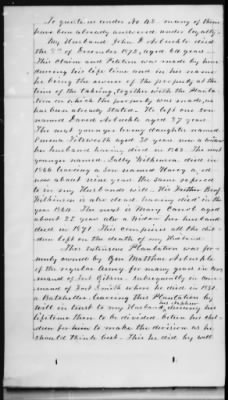 To questions under No 42 many of them
have been already answered under loyalty.
My Husband John D Arbuckle died
the 2nd of December 1875, aged 60 years
This Claim and Petition was made by him
during his life time and in his name
he being the owner of the property at the
time of the taking, together with the Planta-
tion on which the property was made, as
has been already stated. He left one son
named David Arbuckle aged 27 years.
The next younger living daughter named
Emma Titsworth aged 30 years now a widow
her husband having died in 1862. The next
younger named Sally Wilkinson died in
1866 leaving a son named Harry a
now about nine years The same referred
to in my Husbands will. His Father
Wilkinson is also dead leaving died in the
year 1868. The next is Mary Carol aged
about 25 years also a Widow her husband
died in 1871. This comprises all the chil-
dren left on the death of my Husband.
This extensive Plantation was for-
merly owned by Gen Matthew Arbuckle
of the regular Army for many years in com-
mand of Fort Gibson. Subsequently in com-
mand of Fort Smith where he died in 1851.
a Batchellor leaving this Plantation by
will in trust to my Husband his nephew during his
lifetime then to be divided between his chil-
dren for him to make the division as he
should think best. This he did by will